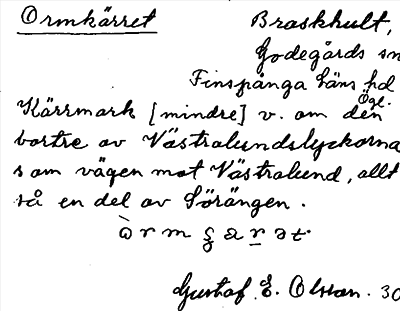 Ormkärret Braskhult,
Godegårds sn
Finspånga läns hd
Ögl.
Kärrmark [mindre] v. om den
bortre av Västralundslyckorna
som vägen mot Västralund, allt
så en del av Sörängen.
Gustaf E. Olsson. 30